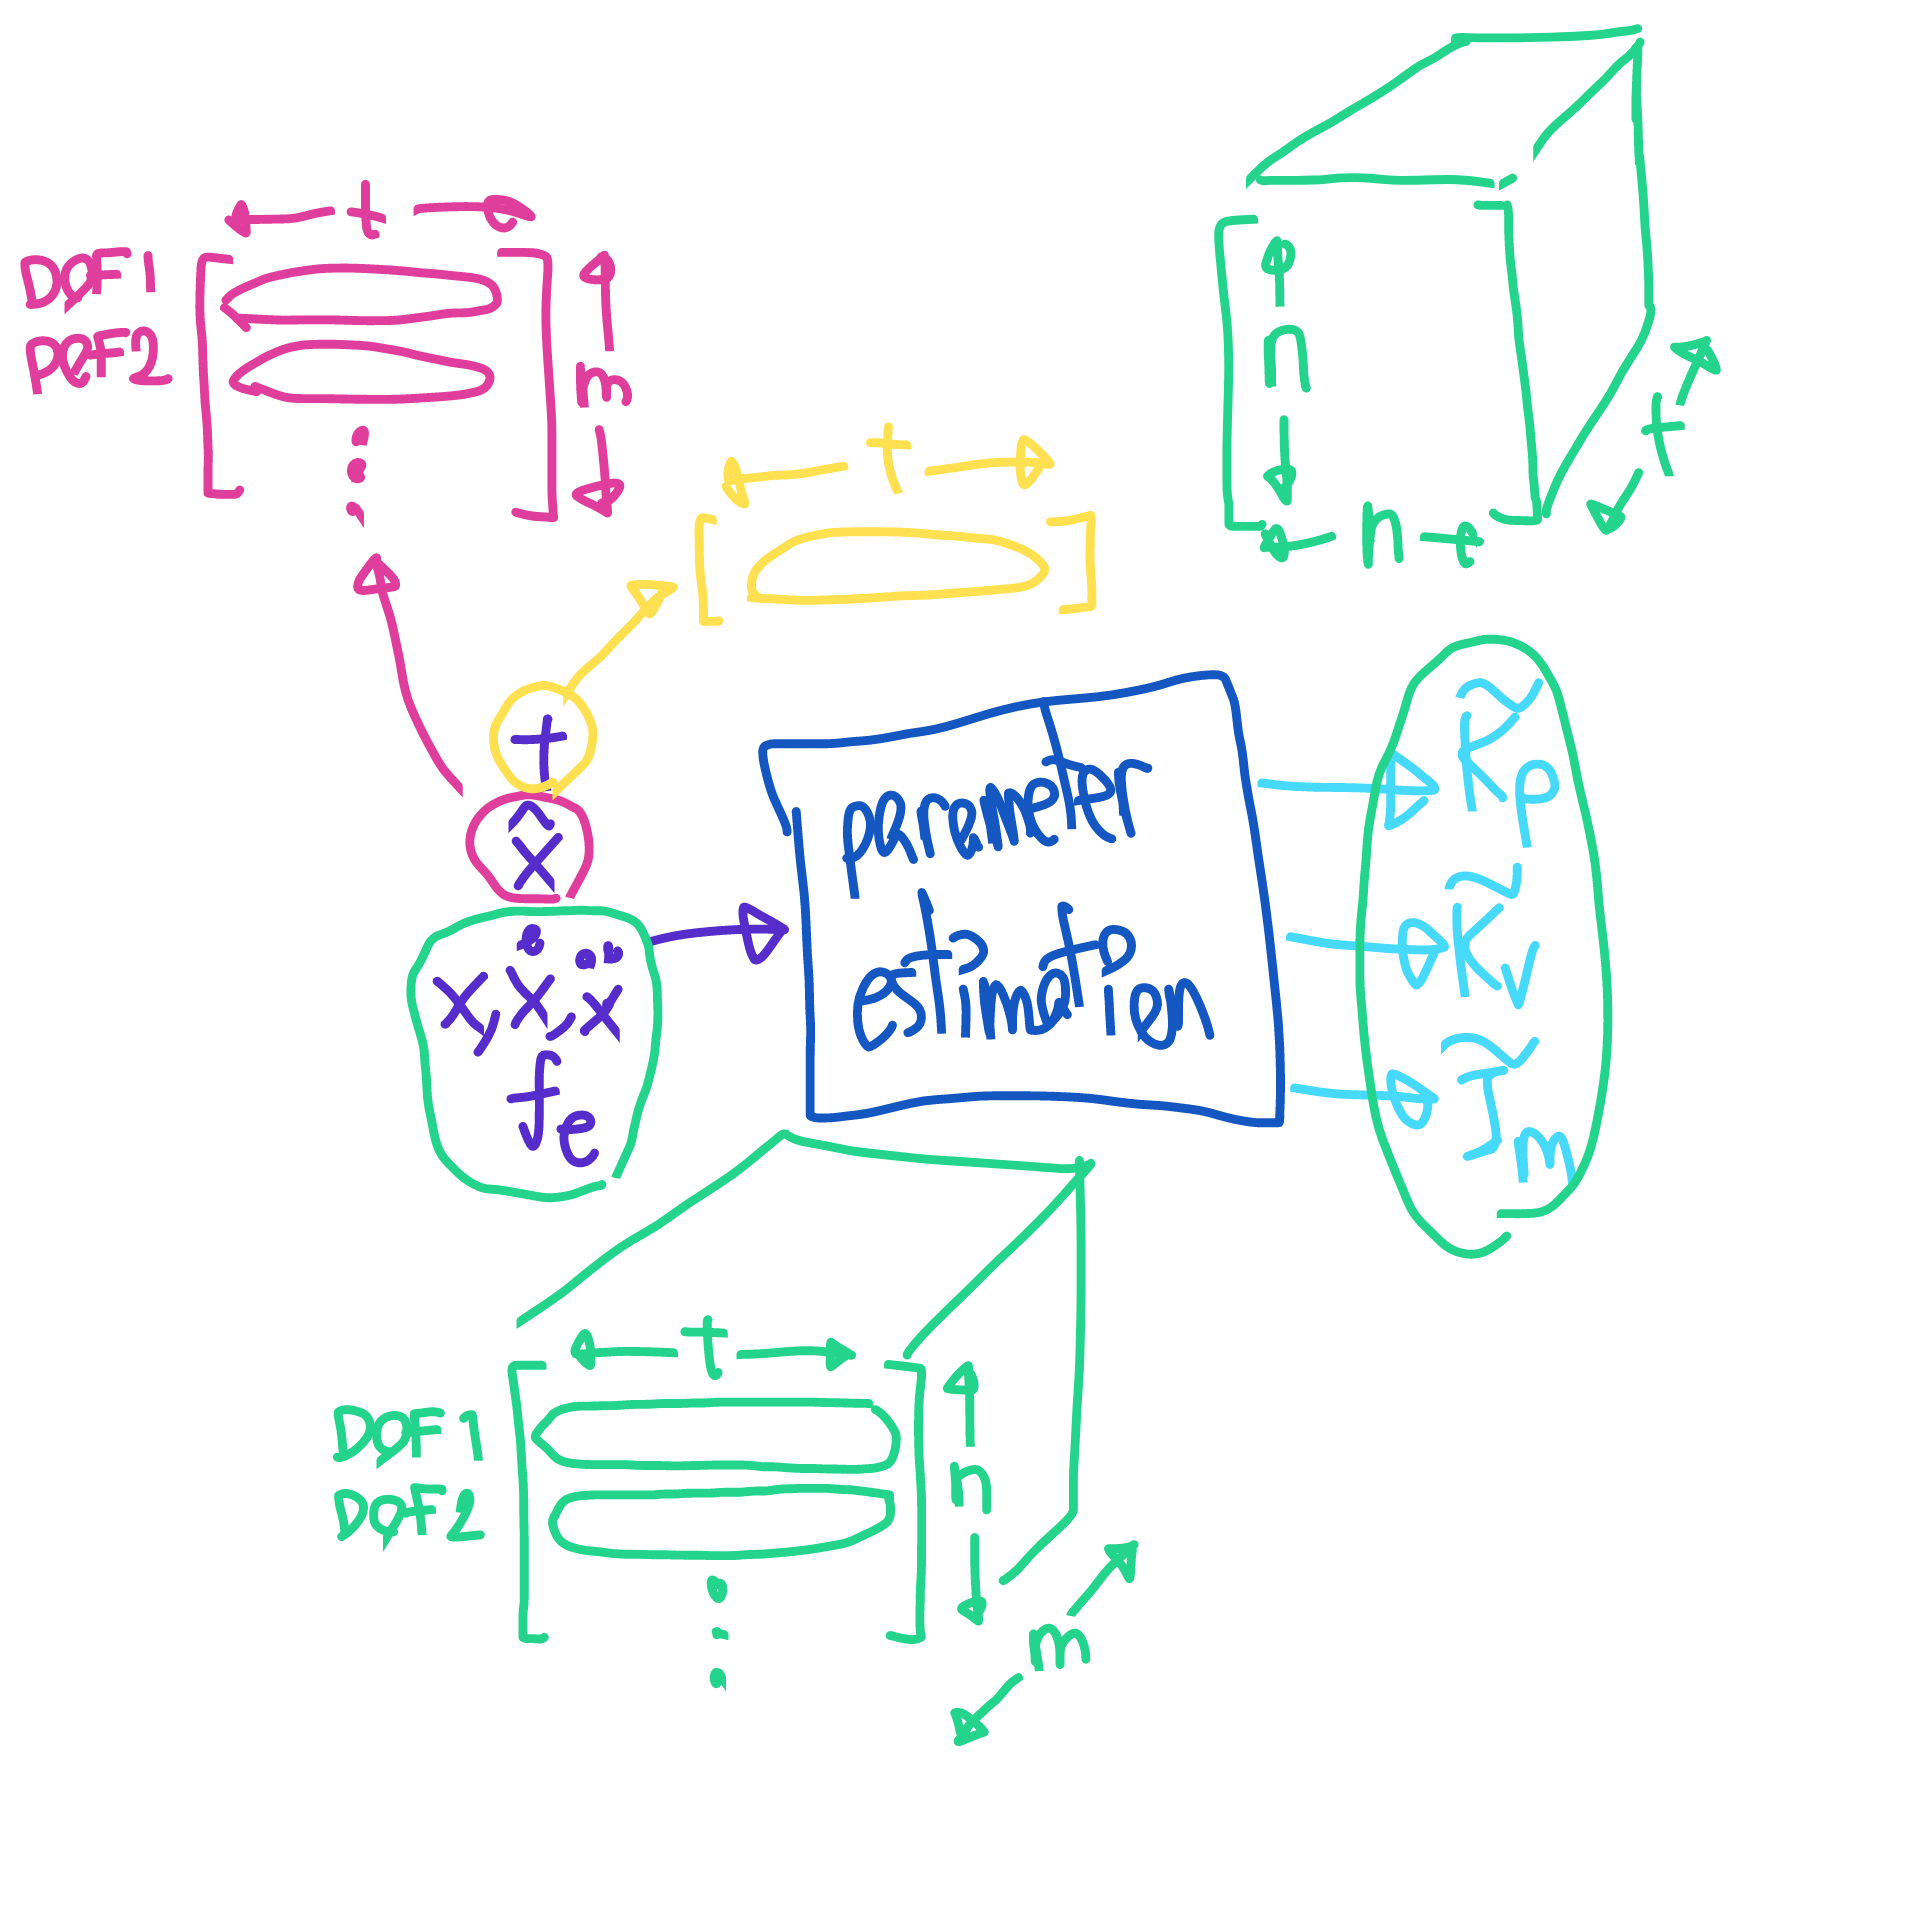 t
DOF1
DOF2
m
t
n
n
t
t
x̂
x, ẋ, ẍ
fe
parameter
estimation
K̃p
K̃v
Ĩm
t
DOF1
DOF2
n
m